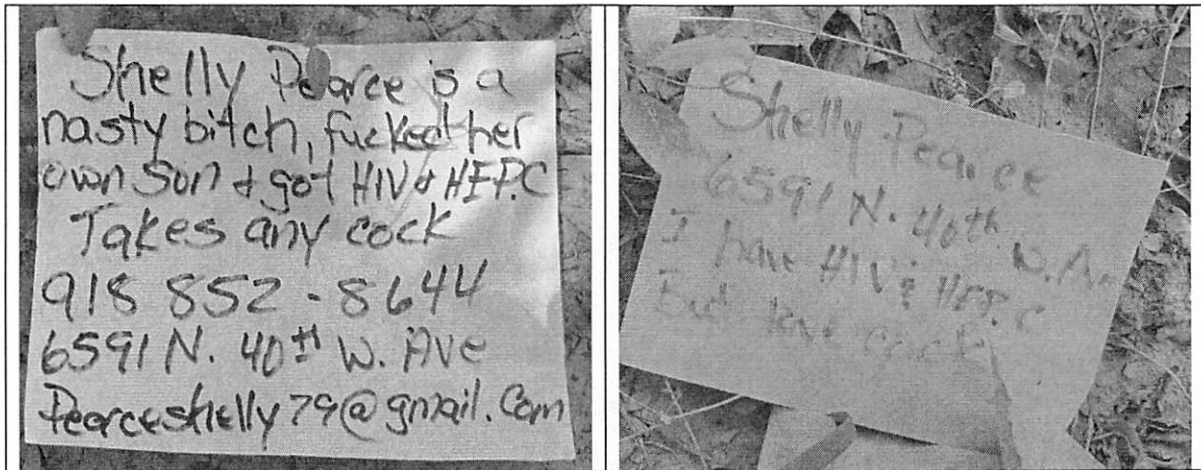 Shelly Pearce is a
nasty bitch, fucked her
own son & got HIV & HEP.C
Takes any cock
918 852-8644
6591 N. 40th W. Ave
Pearceshelly79@gmail.com
Shelly Pearce
6591 N. 40th W. Av
I have HIV & HEP. C
But